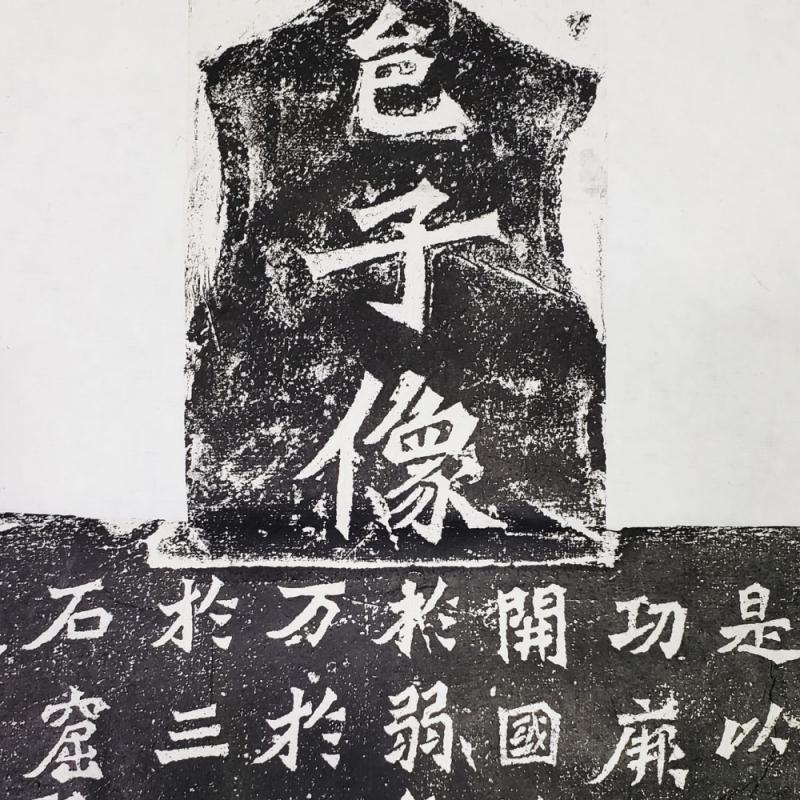 邑子像
是以
功厥
開國
於弱
万於
於三
石窟